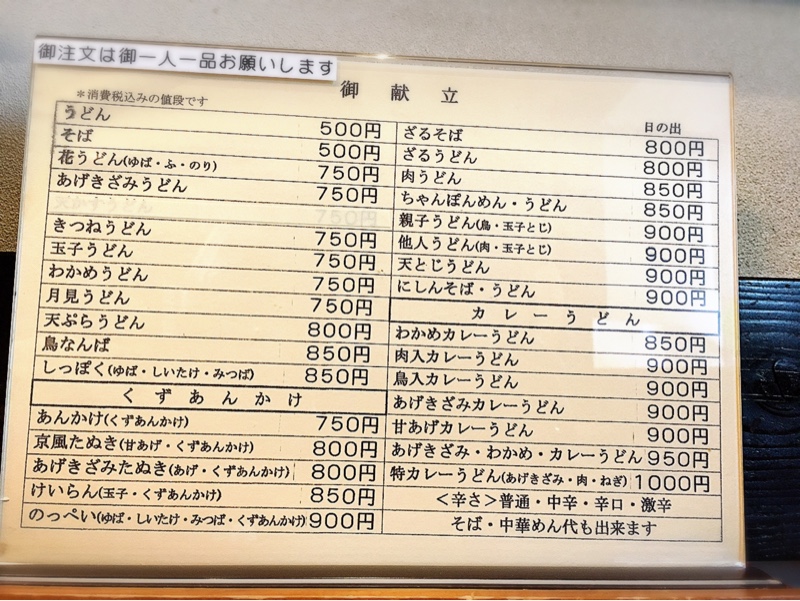 御注文は御一人一品お願いします
御献立
＊消費税込みの値段です
日の出
うどん 500円
そば 500円
花うどん(ゆば・ふ・のり) 750円
あげきざみうどん 750円
天かすうどん 750円
きつねうどん 750円
玉子うどん 750円
わかめうどん 750円
月見うどん 750円
天ぷらうどん 800円
鳥なんば 850円
しっぽく(ゆば・しいたけ・みつば) 850円
くずあんかけ
あんかけ(くずあんかけ) 750円
京風たぬき(甘あげ・くずあんかけ) 800円
あげきざみたぬき(あげ・くずあんかけ) 800円
けいらん(玉子・くずあんかけ) 850円
のっぺい(ゆば・しいたけ・みつば・くずあんかけ) 900円
ざるそば 800円
ざるうどん 800円
肉うどん 850円
ちゃんぽんめん・うどん 850円
親子うどん(鳥・玉子とじ) 900円
他人うどん(肉・玉子とじ) 900円
天とじうどん 900円
にしんそば・うどん 900円
カレーうどん
わかめカレーうどん 850円
肉入カレーうどん 900円
鳥入カレーうどん 900円
あげきざみカレーうどん 900円
甘あげカレーうどん 900円
あげきざみ・わかめ・カレーうどん 950円
特カレーうどん(あげきざみ・肉・ねぎ) 1000円
＜辛さ＞普通・中辛・辛口・激辛
そば・中華めん代も出来ます